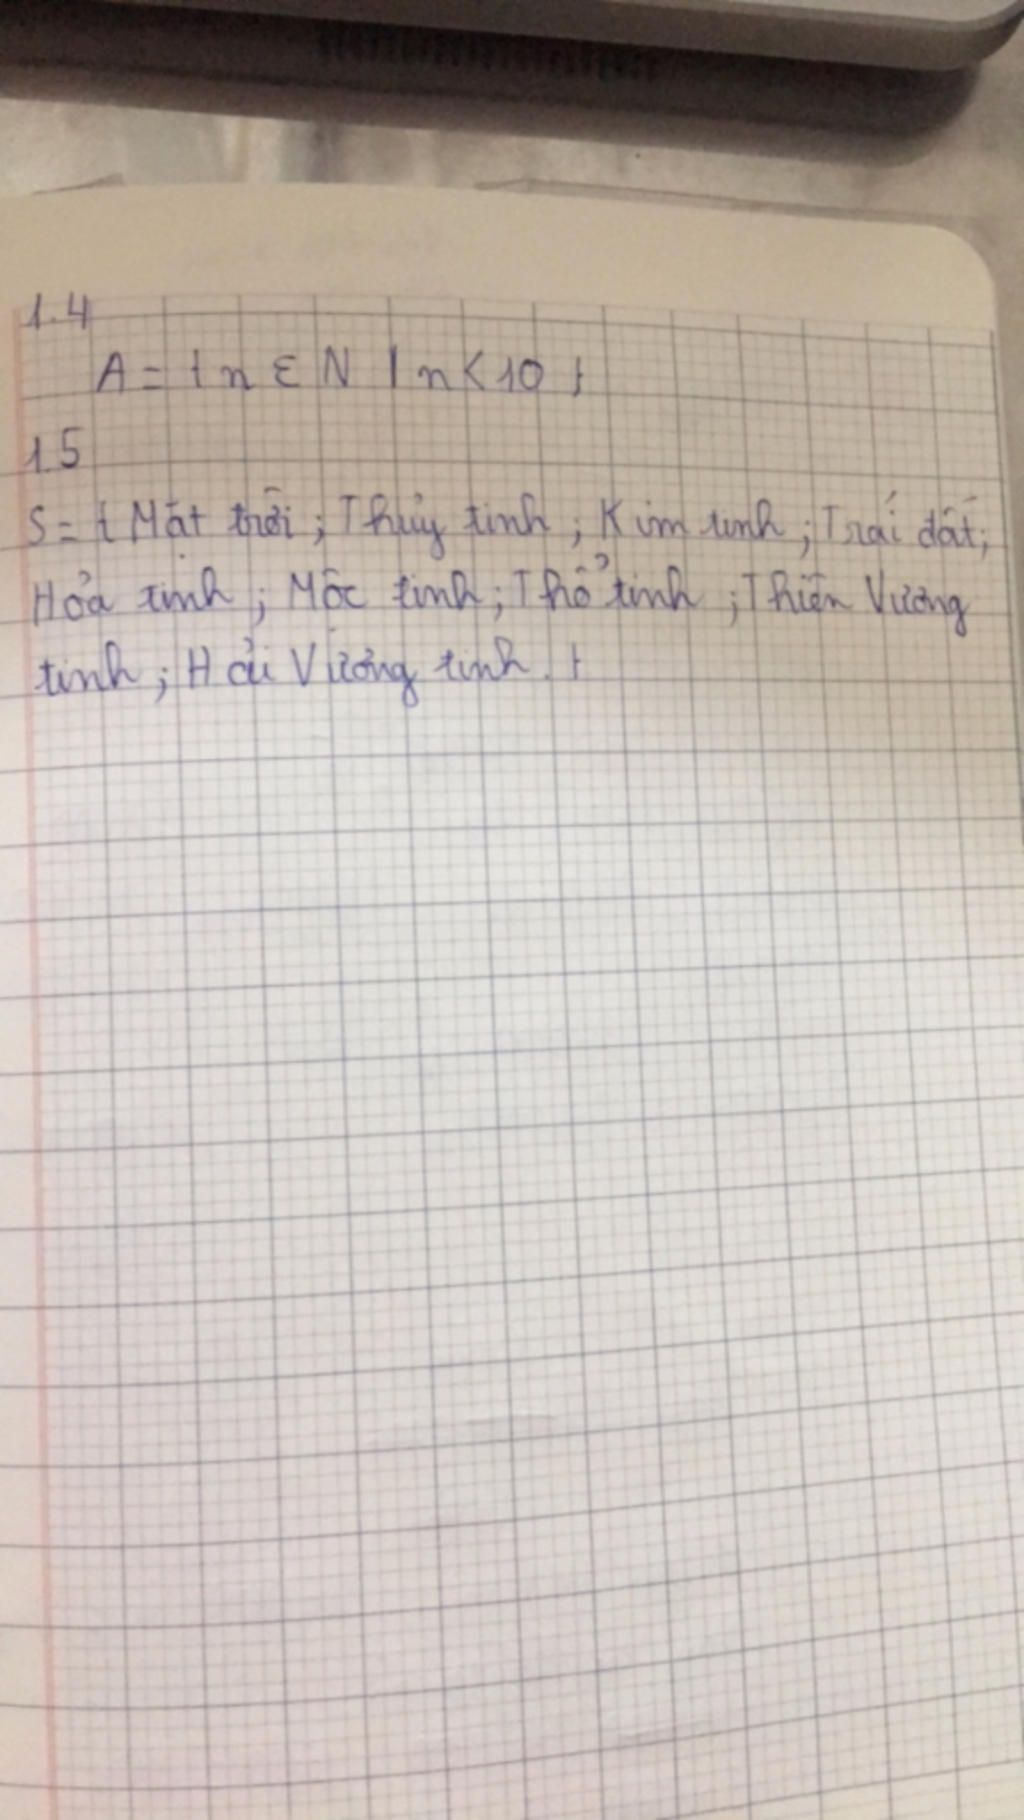 1.4
A = { n ∈ N | n < 10 }
1.5
S = { Mặt trời ; Thủy tinh ; Kim tinh ; Trái đất ;
Hỏa tinh ; Mộc tinh ; Thổ tinh ; Thiên Vương
tinh ; Hải Vương tinh . }